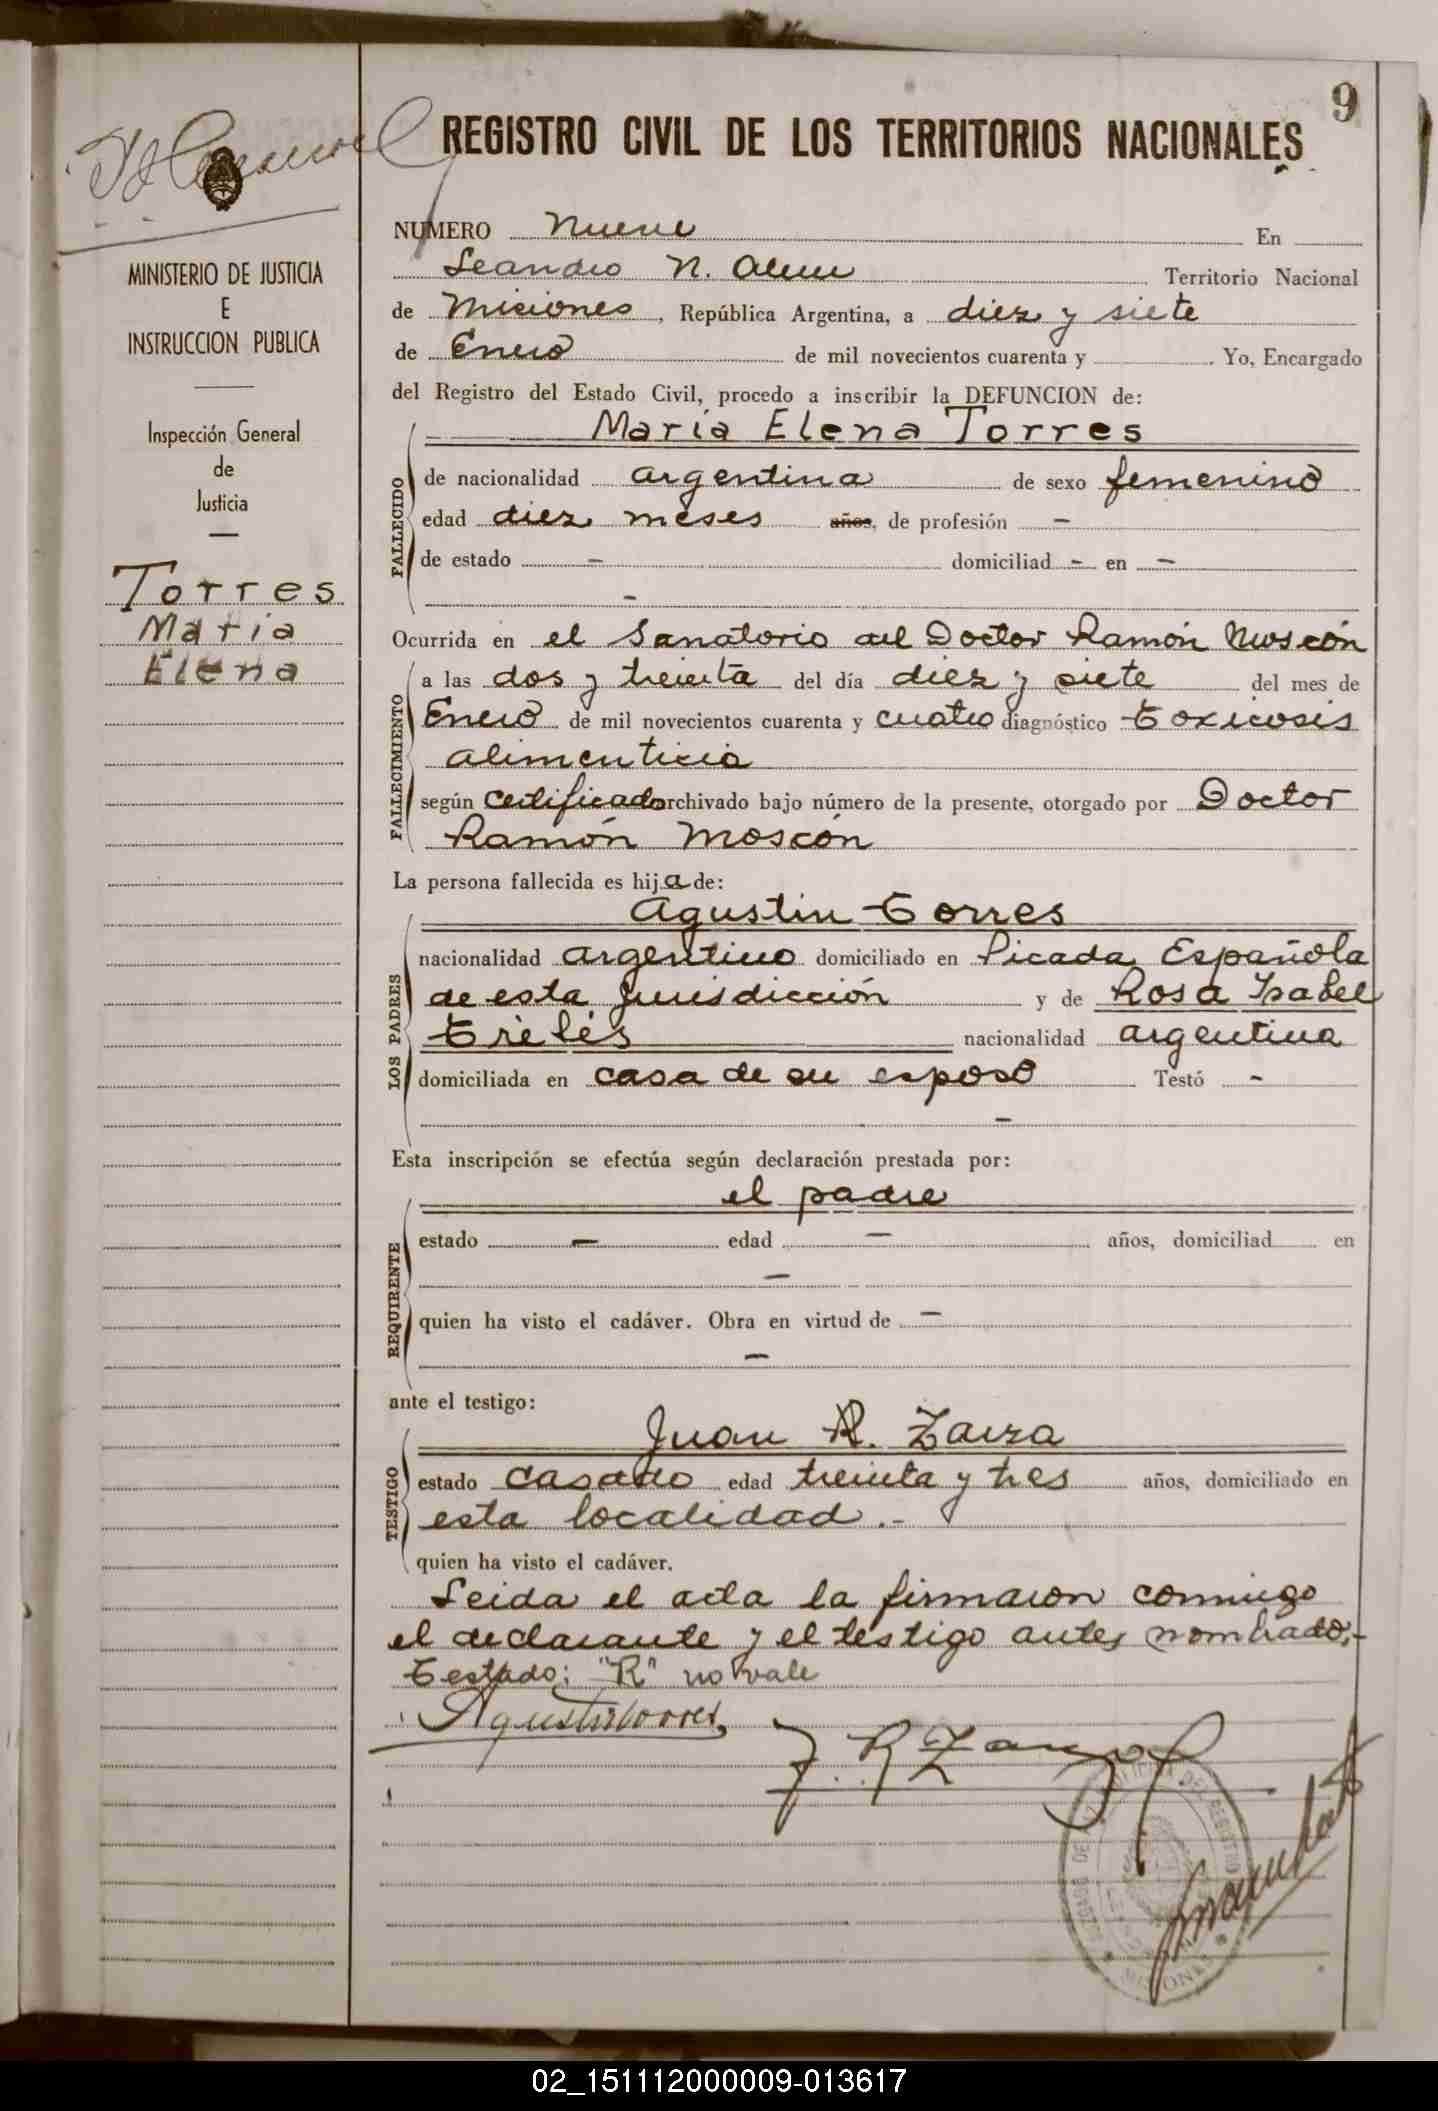 9
REGISTRO CIVIL DE LOS TERRITORIOS NACIONALES
MINISTERIO DE JUSTICIA
E
INSTRUCCION PUBLICA
Inspección General
de
Justicia
Torres
María
Elena
NUMERO Nueve En
Leandro N. Alem Territorio Nacional
de Misiones, República Argentina, a diez y siete
de Enero de mil novecientos cuarenta y . Yo, Encargado
del Registro del Estado Civil, procedo a inscribir la DEFUNCION de:
María Elena Torres
FALLECIDO
de nacionalidad argentina de sexo femenino
edad diez meses años, de profesión –
de estado – domiciliad – en –
–
Ocurrida en el Sanatorio del Doctor Ramón Moscón
FALLECIMIENTO
a las dos y treinta del día diez y siete del mes de
Enero de mil novecientos cuarenta y cuatro diagnóstico toxicosis
alimenticia
según certificado archivado bajo número de la presente, otorgado por Doctor
Ramón Moscón
La persona fallecida es hija de:
LOS PADRES
Agustin Torres
nacionalidad argentino domiciliado en Picada Española
de esta jurisdicción y de Rosa Isabel
nacionalidad argentina
domiciliada en casa de su esposo Testó –
–
Esta inscripción se efectúa según declaración prestada por:
REQUIRENTE
el padre
estado – edad – años, domiciliad en
–
quien ha visto el cadáver. Obra en virtud de –
–
ante el testigo:
TESTIGO
Juan R. Zarza
estado casado edad treinta y tres años, domiciliado en
esta localidad.-
quien ha visto el cadáver.
Leida el acta la firmaron conmigo
el declarante y el testigo antes nombrado.-
Testado: "R" no vale
Agustin Torres
J. R. Zarza
MISIONES
02_151112000009-013617